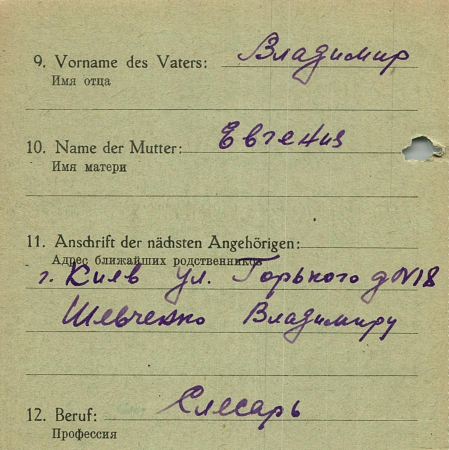 9. Vorname des Vaters: Владимир
Имя отца
10. Name der Mutter: Евгения
Имя матери
11. Anschrift der nächsten Angehörigen:
Адрес ближайших родственников
г. Киев ул. Горького д N18
Шевченко Владимиру
12. Beruf: Слесарь
Профессия